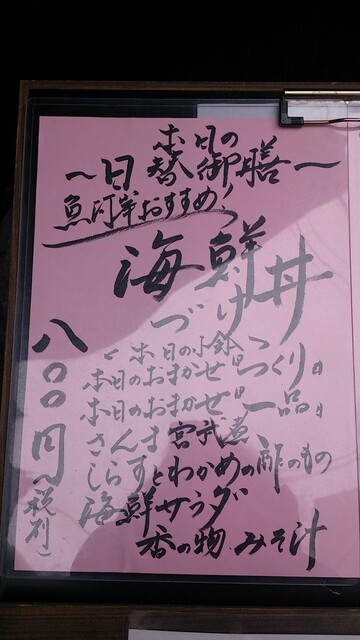 本日の
～日替御膳～
魚河岸おすすめ！
海鮮丼
づけ
本日の小鉢
本日のおまかせ『つくり』
本日のおまかせ『一品』
さんま宮武煮
しらすとわかめの酢のもの
海鮮サラダ
香の物 みそ汁
八〇〇円（税別）